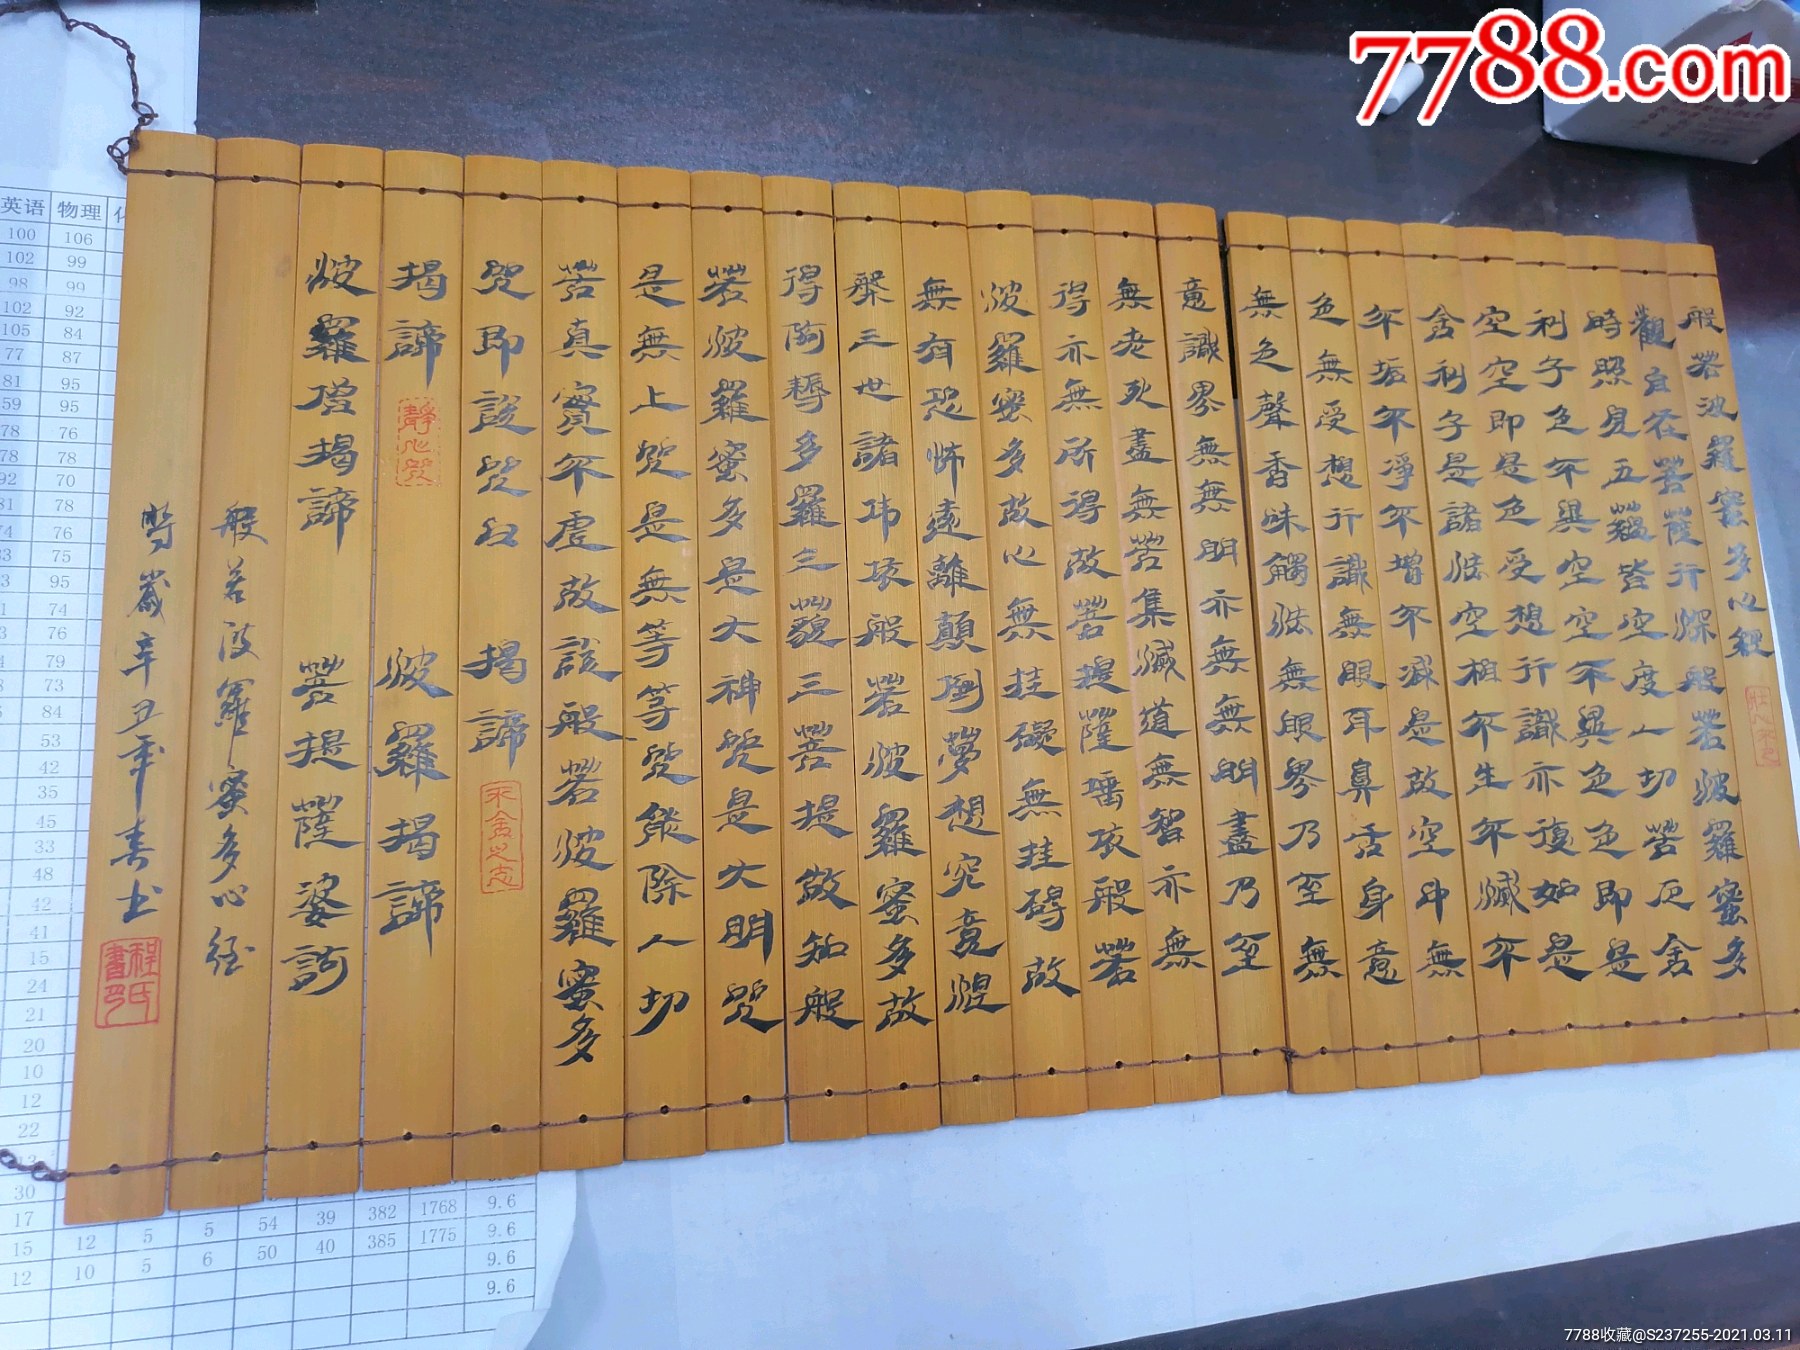 7788.com
般若波羅蜜多心經
觀自在菩薩行深般若波羅蜜多
時照見五蘊皆空度一切苦厄舍
利子色不異空空不異色色即是
空空即是色受想行識亦復如是
舍利子是諸法空相不生不滅不
不垢不淨不增不減是故空中無
色無受想行識無眼耳鼻舌身意
無色聲香味觸法無眼界乃至無
意識界無無明亦無無明盡乃至
無老死盡無苦集滅道無智亦無
得亦無所得故菩提薩埵依般若
波羅蜜多故心無挂礙無挂碍故
無有恐怖遠離顛倒夢想究竟涅
槃三世諸佛依般若波羅蜜多故
得阿耨多羅三藐三菩提故知般
若波羅蜜多是大神咒是大明咒
是無上咒是無等等咒能除一切
苦真實不虛故說般若波羅蜜多
咒即說咒曰 揭諦
揭諦 波羅揭諦
波羅僧揭諦 菩提薩婆訶
般若波羅蜜多心经
時歲辛丑年春书
程氏書印
英语 物理
100 106
102 99
98 99
102 92
105 84
77 87
81 95
59 95
78 76
78 78
92 70
81 78
17 5 5 54 39 382 1768 9.6
15 12 5 6 50 40 385 1775 9.6
12 10 9.6
9.6
7788收藏@S237255-2021.03.11